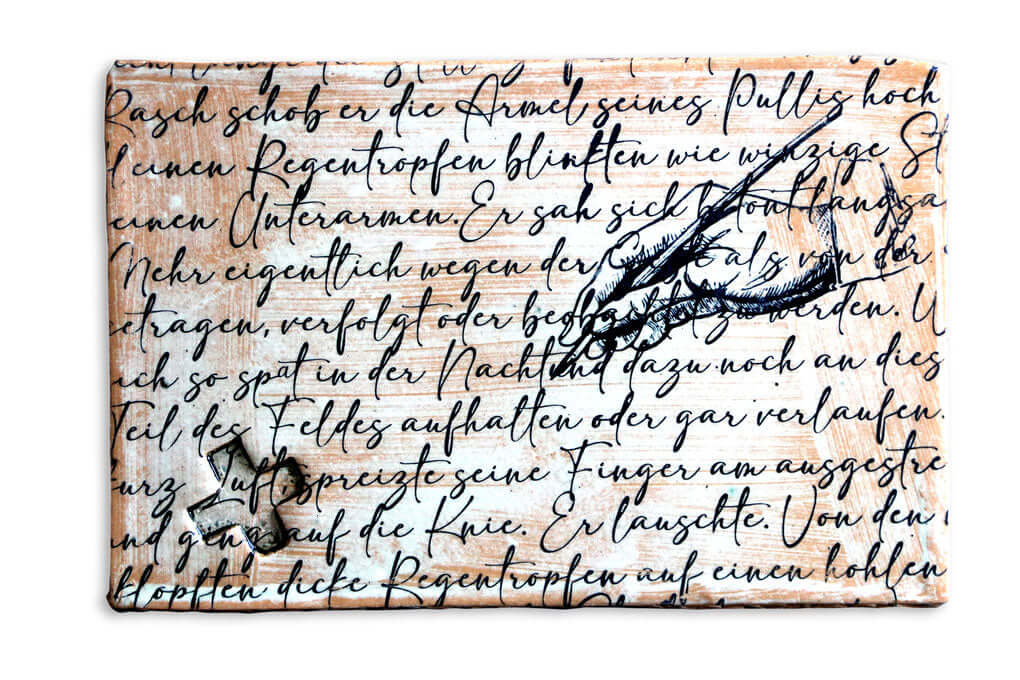 Rasch schob er die Ärmel seines Pullis hoch
einen Regentropfen blinkten wie winzige St
einen Unterarmen. Er sah sich betont langsa
Mehr eigentlich wegen der als von der
etragen, verfolgt oder beobachtet zu werden. U
ich so spät in der Nacht und dazu noch an dies
Teil des Feldes aufhalten oder gar verlaufen.
urz Luft, spreizte seine Finger am ausgestre
nd ging auf die Knie. Er lauschte. Von den
klopften dicke Regentropfen auf einen hohlen